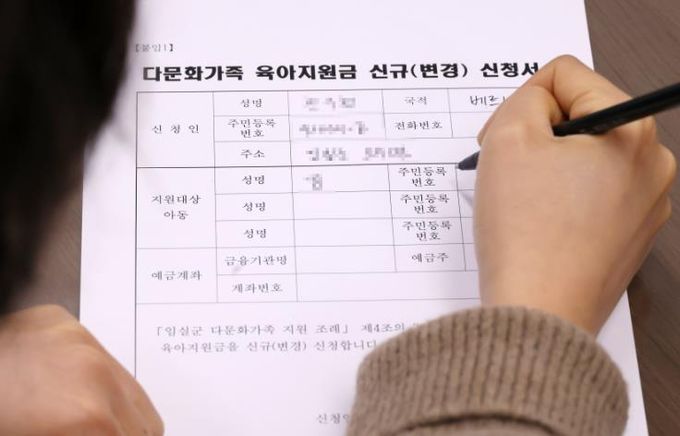 [붙임1]
다문화가족 육아지원금 신규(변경) 신청서
신청인
성명
국적
주민등록
번호
전화번호
주소
지원대상
아동
성명
주민등록
번호
성명
주민등록
번호
성명
주민등록
번호
예금계좌
금융기관명
예금주
계좌번호
「임실군 다문화가족 지원 조례」 제4조의
육아지원금을 신규(변경) 신청합니다